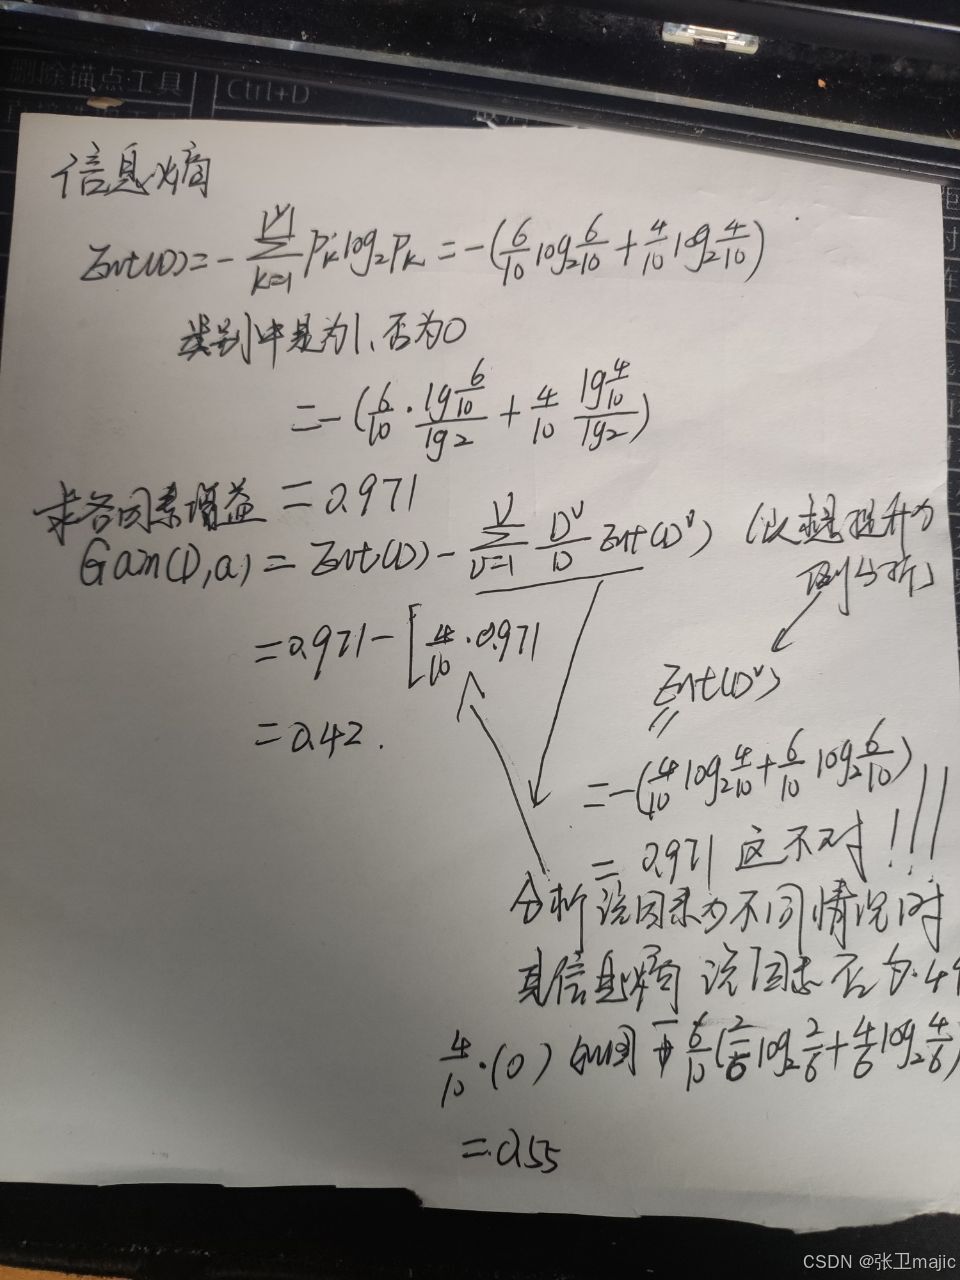 删除锚点工具
Ctrl+D
信息熵
Ent(D)=-∑_{k=1}^{|y|} P_k log₂P_k = -(6/10 log₂ 6/10 + 4/10 log₂ 4/10)
类别中是为1、否为0
=-(6/10 · lg 6/10 / lg2 + 4/10 lg 4/10 / lg2)
=0.971
求各因素增益
Gain(D,a)=Ent(D)-∑_{v=1}^{V} D^v/D Ent(D^v) (以 提升为
例分析)
=0.971-[4/10 · 0.971
=0.42.
Ent(D^v)
=-(4/10 log₂ 4/10 + 6/10 log₂ 6/10)
=0.971 这不对!!!
分析该因素为不同情况时
其信息熵 该因素否为
4/10·(0) - 6/10(2/6 log₂ 2/6 + 4/6 log₂ 4/6)
=0.55
CSDN @张卫majic